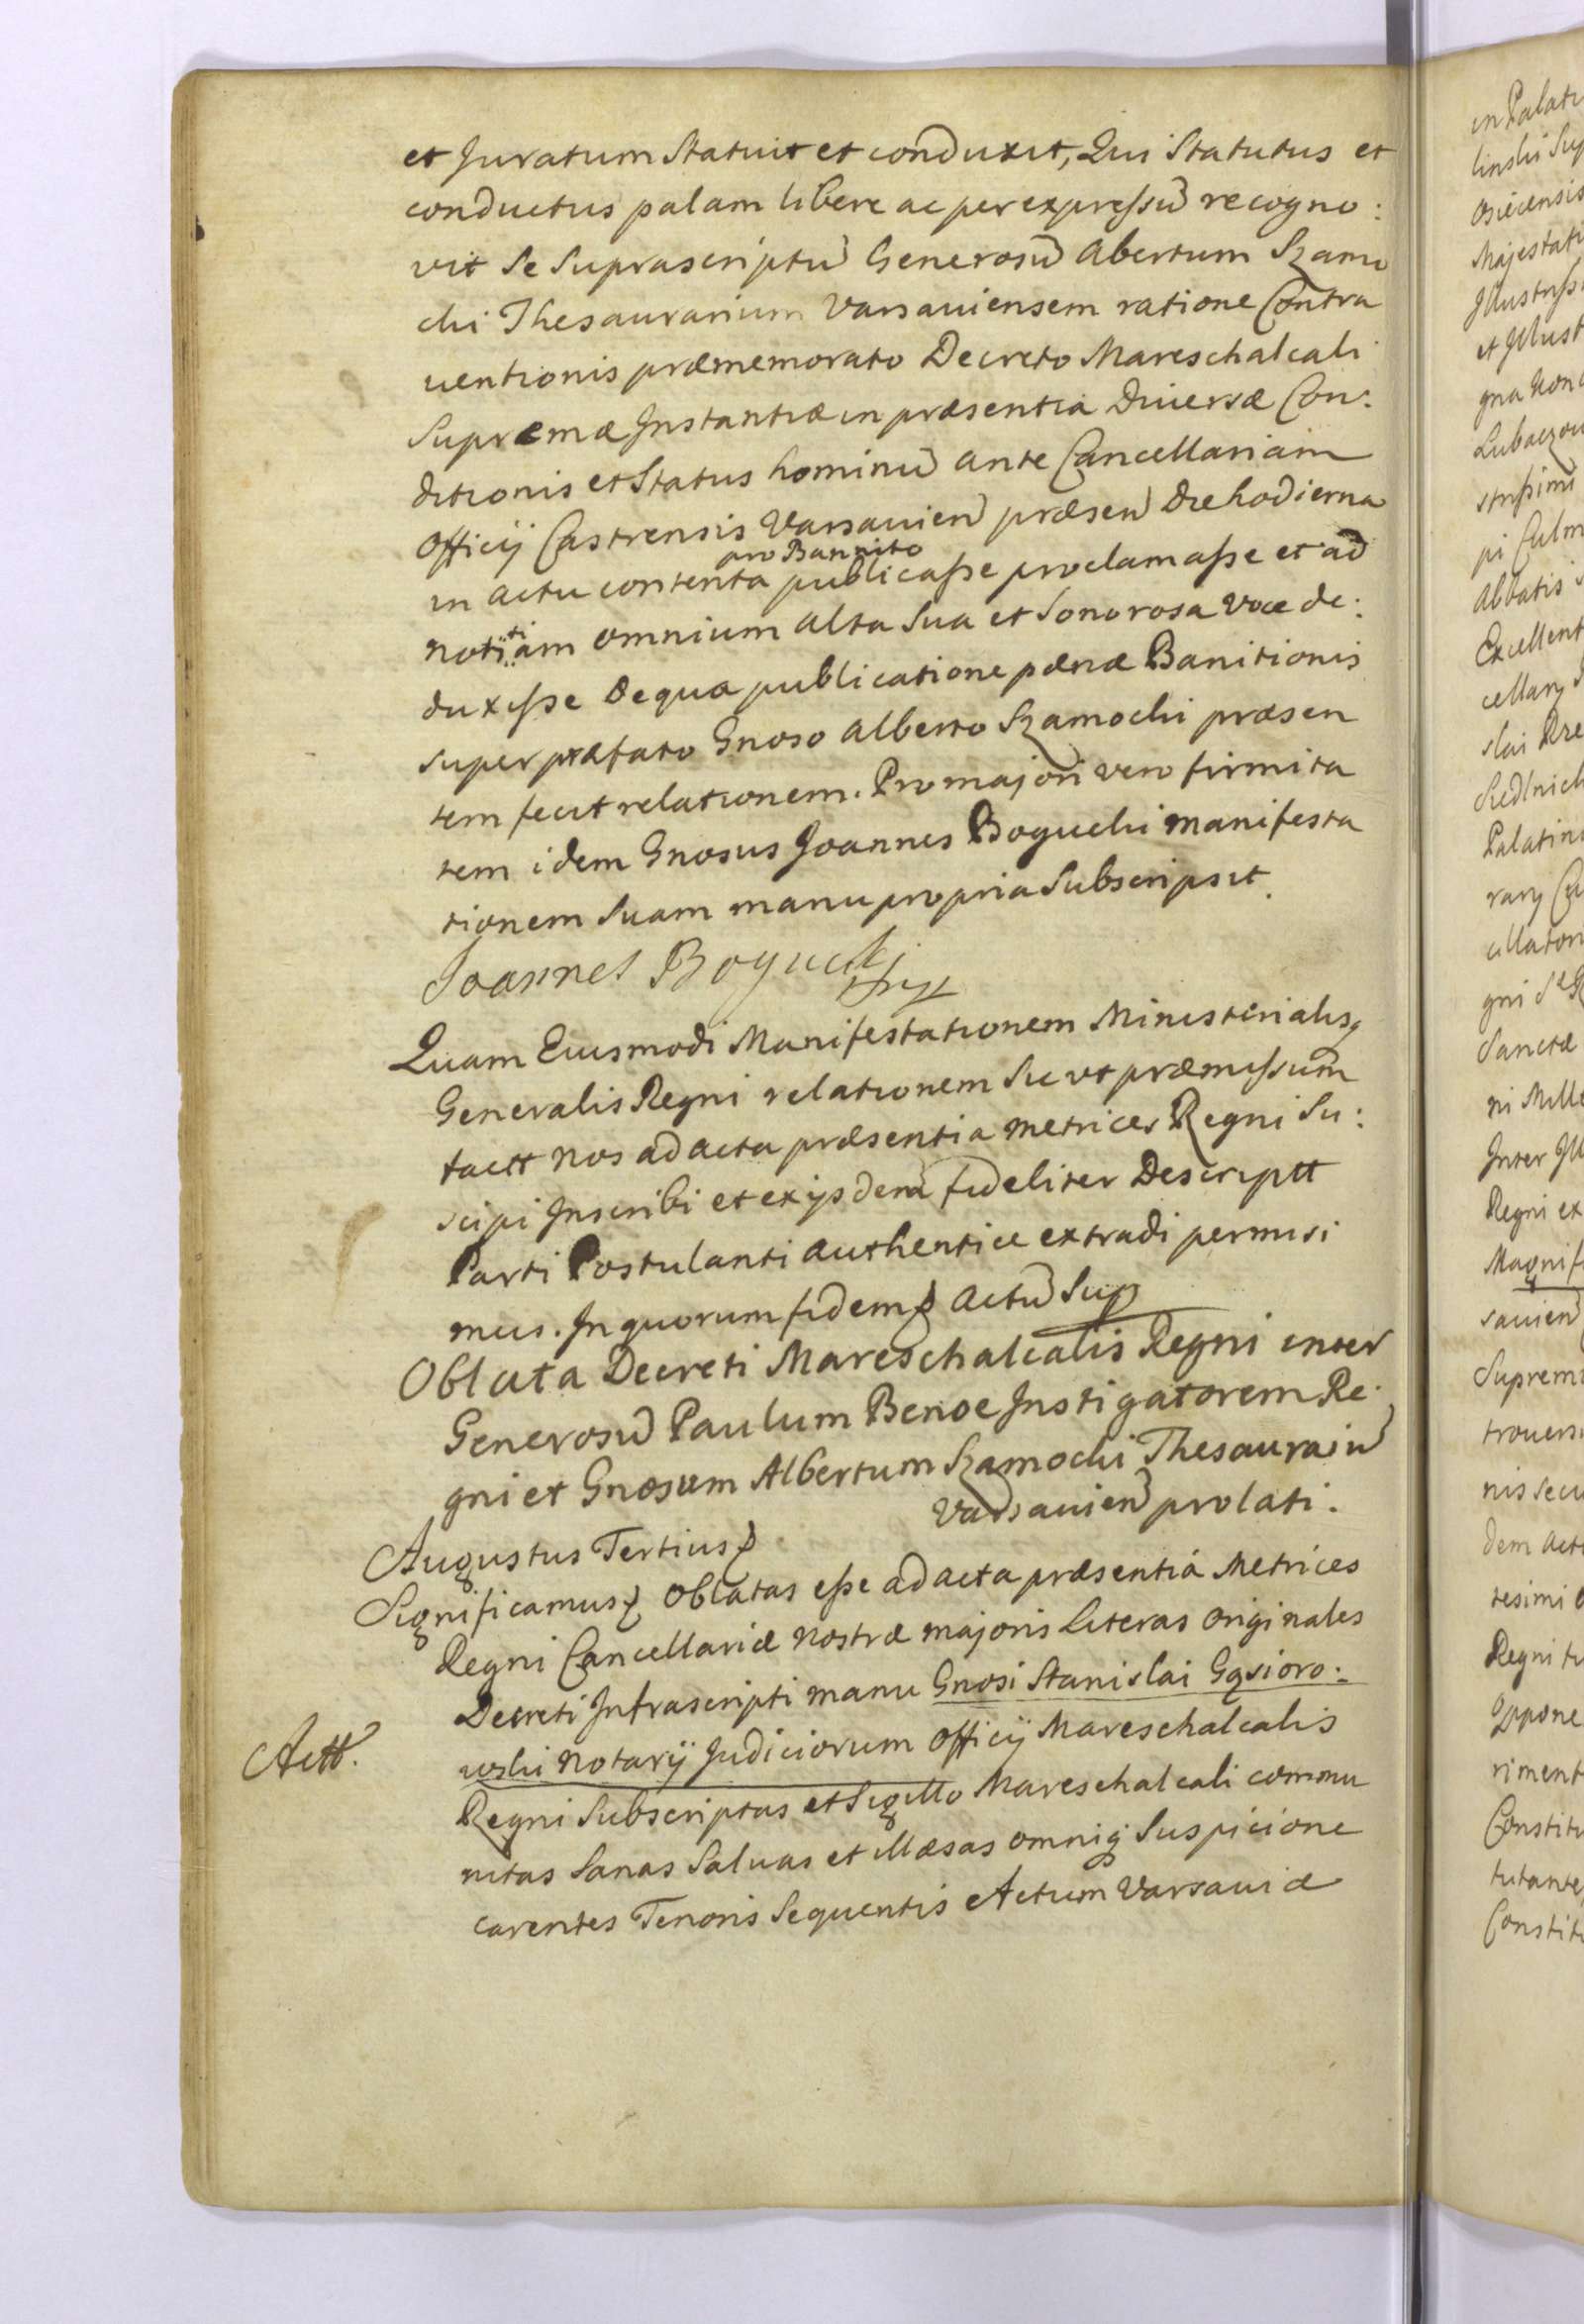 et Juratum Statuit et conduxit, Qui Statutus et
conductus palam libere ac per expreſsũ recogno:
vit Se Suprascriptũ Generosũ Abertum Szamo
cki Thesaurarium Varsauiensem ratione Contra
uentionis præmemorato Decreto Mareschalcali
Supremæ Instantiæ in præsentia Diuersæ Con:
ditionis et Status hominũ ante Cancellariam
Officij Castrensis Varsauien præsen die hodierna
pro Bannito
in actu contenta publicaſse proclamaſse et ad
notitiam omnium alta Sua et Sonorosa voce de:
duxiſse De qua publicatione pænæ Banitionis
super præfato Gnoso Alberto Szamocki præsen
tem fecit relationem. Pro majori vero firmita
tem idem Gnosus Joannes Bogucki manifesta
tionem Suam manu propria Subscripsit.
Joannes Bogucki
Quam Eiusmodi Manifestationem Ministerialisq
Generalis Regni relationem Sic vt præmiſsum
factt nos ad acta præsentia metrices Regni Su:
scipi Inscribi et ex ijsdem fideliter Descriptt
Parti Postulanti authentice extradi permisi
mus. In quorum fidem Actũ Sup
Oblata Decreti Mareschalcalis Regni inter
Generosũ Paulum Benoe Instigatorem Re:
gni et Gnosum Albertum Szamocki Thesaurariũ
Varsauien prolati.
Augustus Tertius
Significamus Oblatas eſse ad acta præsentia Metrices
Regni Cancellariæ nostræ majoris Literas originales
Decreti Infrascripti manu Gnosi Stanislai Gąsioro:
wski Notarij Judiciorum Officij Mareschalcalis
Actt.
Regni Subscriptas et Sigillo Mareschalcali commu
nitas Sanas Saluas et illæsas omniq Suspicione
carentes Tenoris Sequentis Actum Varsauiæ
in Palati
linski Sup
osiecensis
Majestati
Illustriſs
et Illust
gna non
Lubaczow
striſsimi
pi Culm
Abbatis
Excellent
cellarij
slai Rze
Siedlnick
Palatin
rarij
gni
Sanctæ
ni Mille
Inter Ill
Regni ex
Magnif
sauien
Suprem
trouers
nis secu
dem act
tesimi
Regni
riment
Constitu
tutante
Constitu